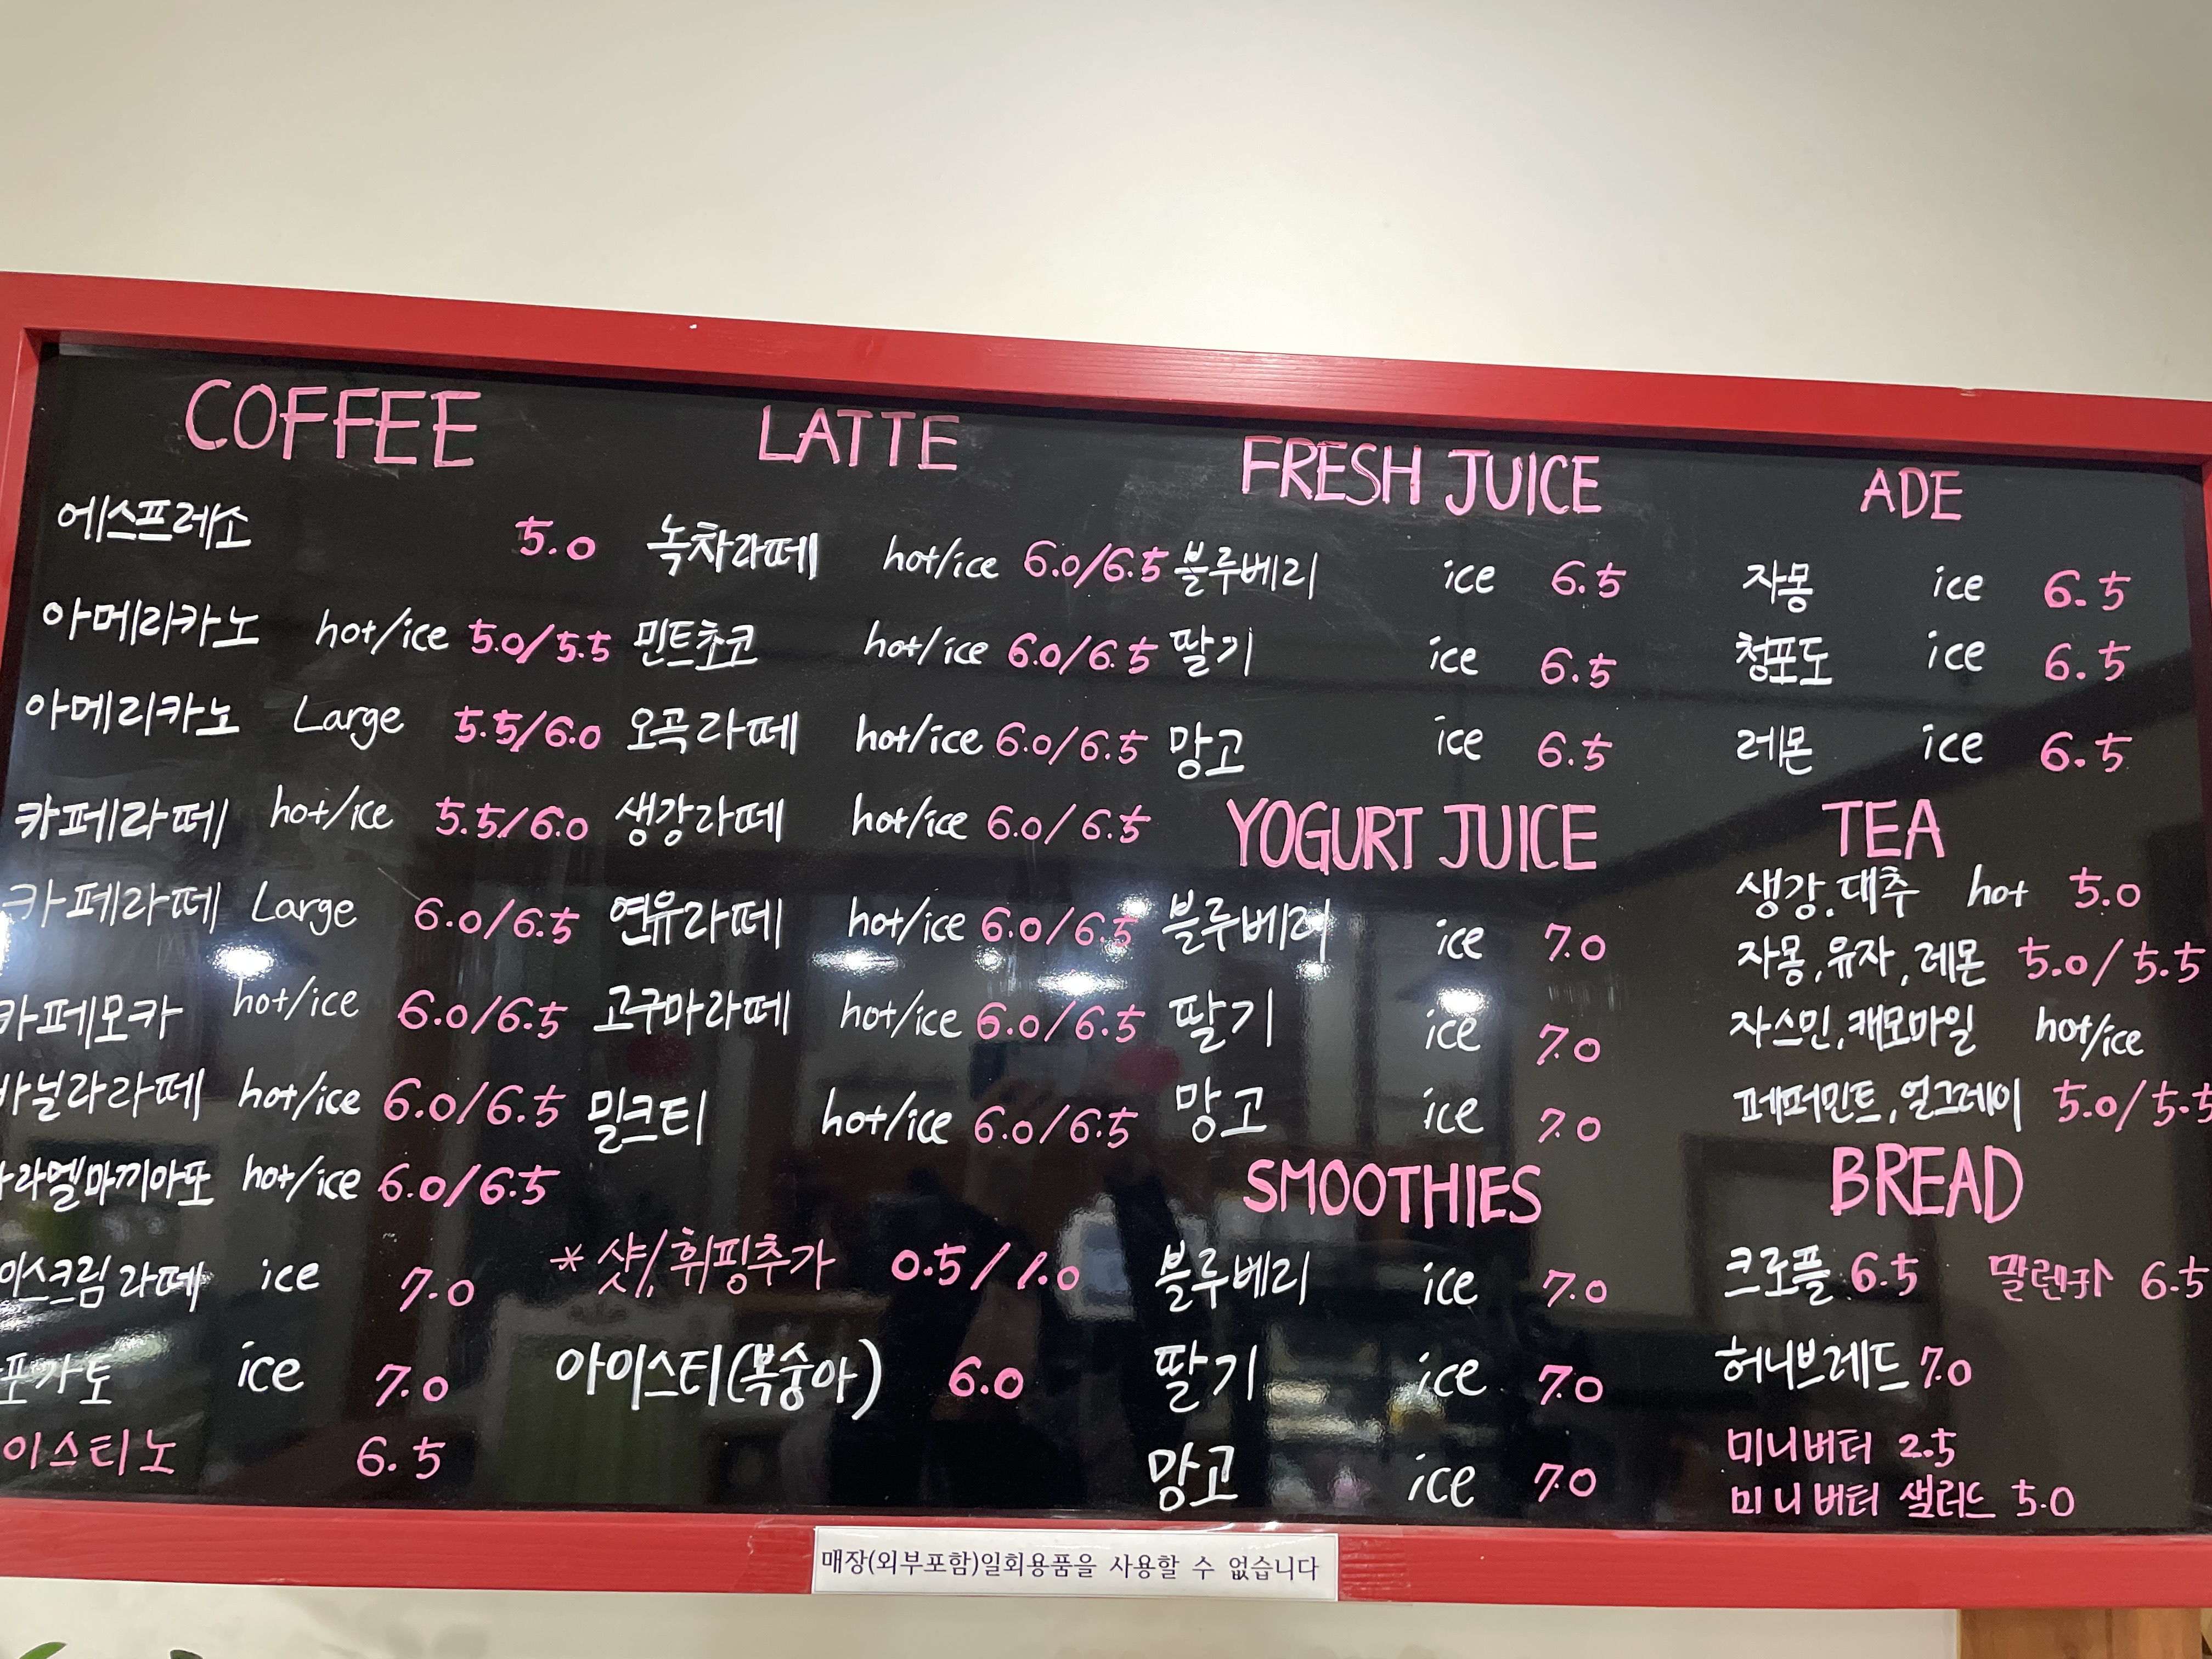 COFFEE
에스프레소 5.0
아메리카노 hot/ice 5.0/5.5
아메리카노 Large 5.5/6.0
카페라떼 hot/ice 5.5/6.0
카페라떼 Large 6.0/6.5
카페모카 hot/ice 6.0/6.5
바닐라라떼 hot/ice 6.0/6.5
라멜마끼아또 hot/ice 6.0/6.5
이스크림라떼 ice 7.0
포가토 ice 7.0
이스티노 6.5
LATTE
녹차라떼 hot/ice 6.0/6.5
민트초코 hot/ice 6.0/6.5
오곡라떼 hot/ice 6.0/6.5
생강라떼 hot/ice 6.0/6.5
연유라떼 hot/ice 6.0/6.5
고구마라떼 hot/ice 6.0/6.5
밀크티 hot/ice 6.0/6.5
*샷/휘핑추가 0.5/1.0
아이스티(복숭아) 6.0
FRESH JUICE
블루베리 ice 6.5
딸기 ice 6.5
망고 ice 6.5
YOGURT JUICE
블루베리 ice 7.0
딸기 ice 7.0
망고 ice 7.0
SMOOTHIES
블루베리 ice 7.0
딸기 ice 7.0
망고 ice 7.0
ADE
자몽 ice 6.5
청포도 ice 6.5
레몬 ice 6.5
TEA
생강.대추 hot 5.0
자몽,유자,레몬 5.0/5.5
자스민,캐모마일 hot/ice
페퍼민트,얼그레이 5.0/5.5
BREAD
크로플 6.5 6.5
허니브레드 7.0
미니버터 2.5
미니버터 샐러드 5.0
매장(외부포함)일회용품을 사용할 수 없습니다